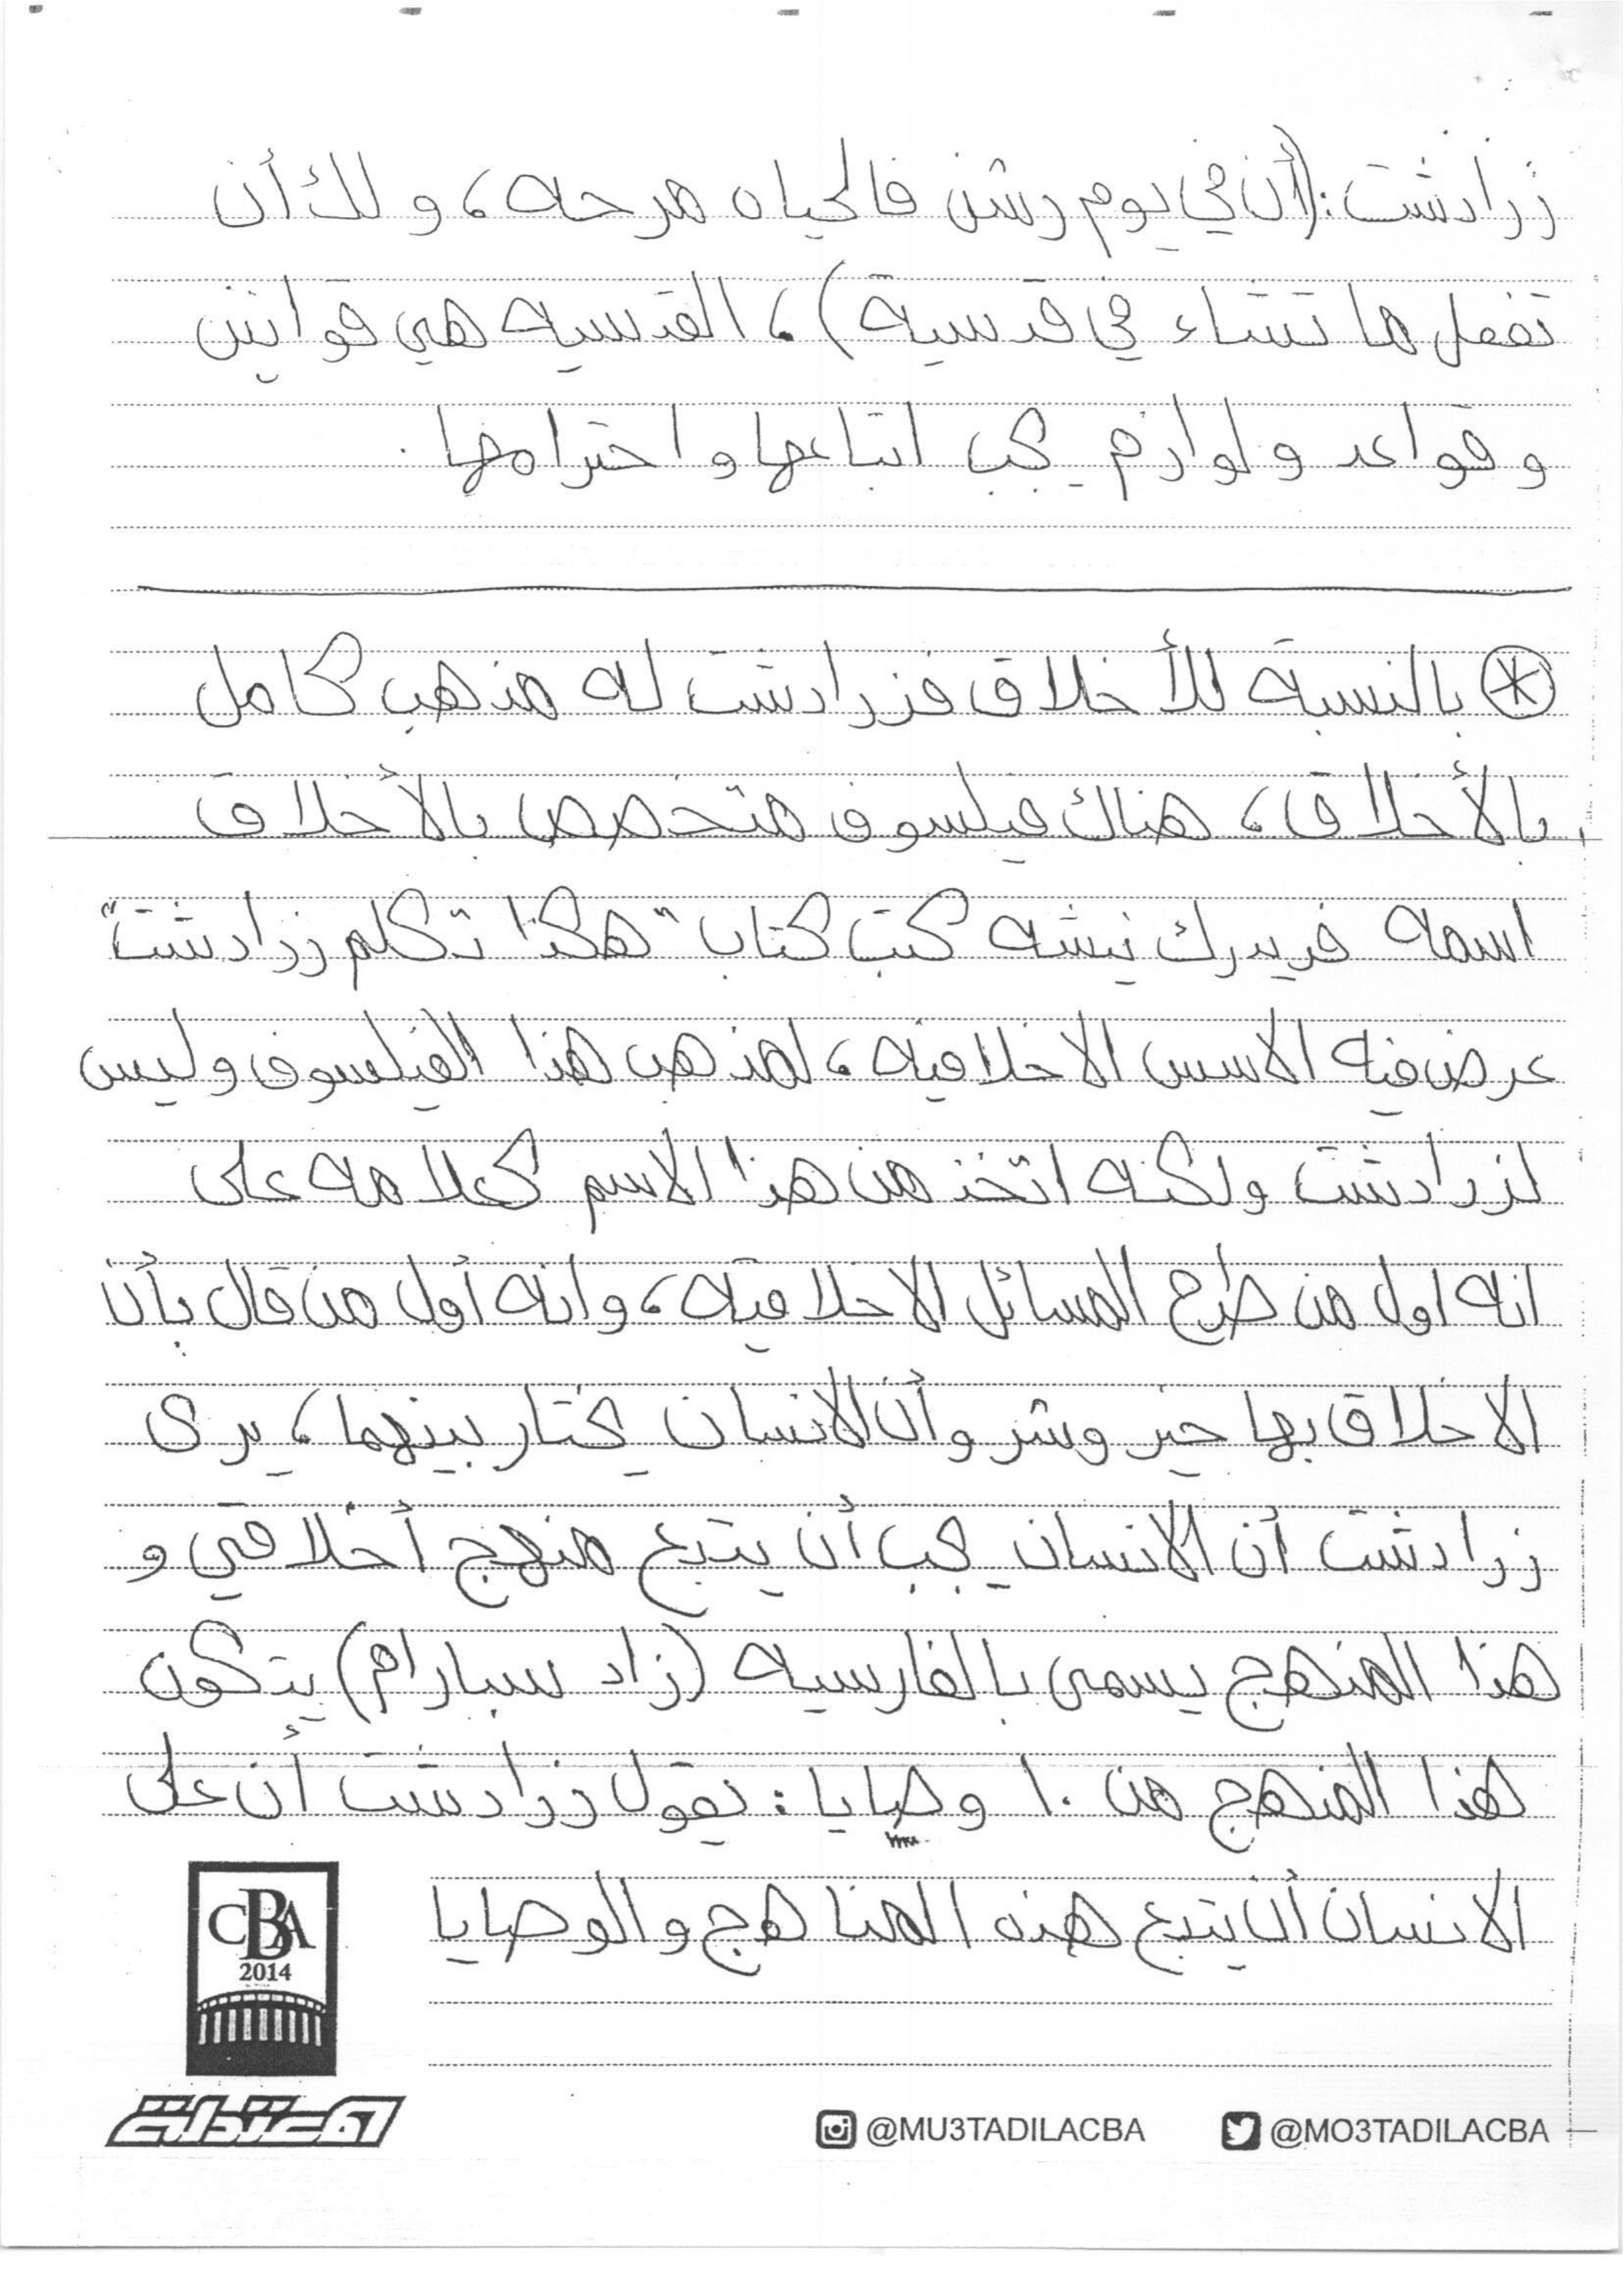 زرادشت: (أن في يوم رشن فالحياه مرحه، ولك أن
تفعل ما تشاء في قدسية)، القدسيه هي قوانين
وقواعد ولوازم يجب اتباعها واحترامها.
* بالنسبة للأخلاق فزرادشت له مذهب كامل
بالأخلاق، هناك فيلسوف متخصص بالأخلاق
اسمه فريدرك نيشه كتب كتاب "هكذا تكلم زرادشت"
عرض فيه الاسس الاخلاقيه، لمذهب هذا الفيلسوف وليس
لزرادشت ولكنه اتخذ من هذا الاسم كعلامه على
انه اول من طرح المسائل الاخلاقيه، وانه أول من قال بأن
الاخلاق بها خير وشر وأن الانسان يختار بينهما، يرى
زرادشت أن الانسان يجب أن يتبع منهج أخلاقي و
هذا المنهج يسمى بالفارسيه (زاد سبارام) يتكون
هذا المنهج من ١٠ وصايا: يقول زرادشت أن على
الانسان أن يتبع هذه المناهج والوصايا
CBA
2014
المعتدلة
@MU3TADILACBA @MO3TADILACBA